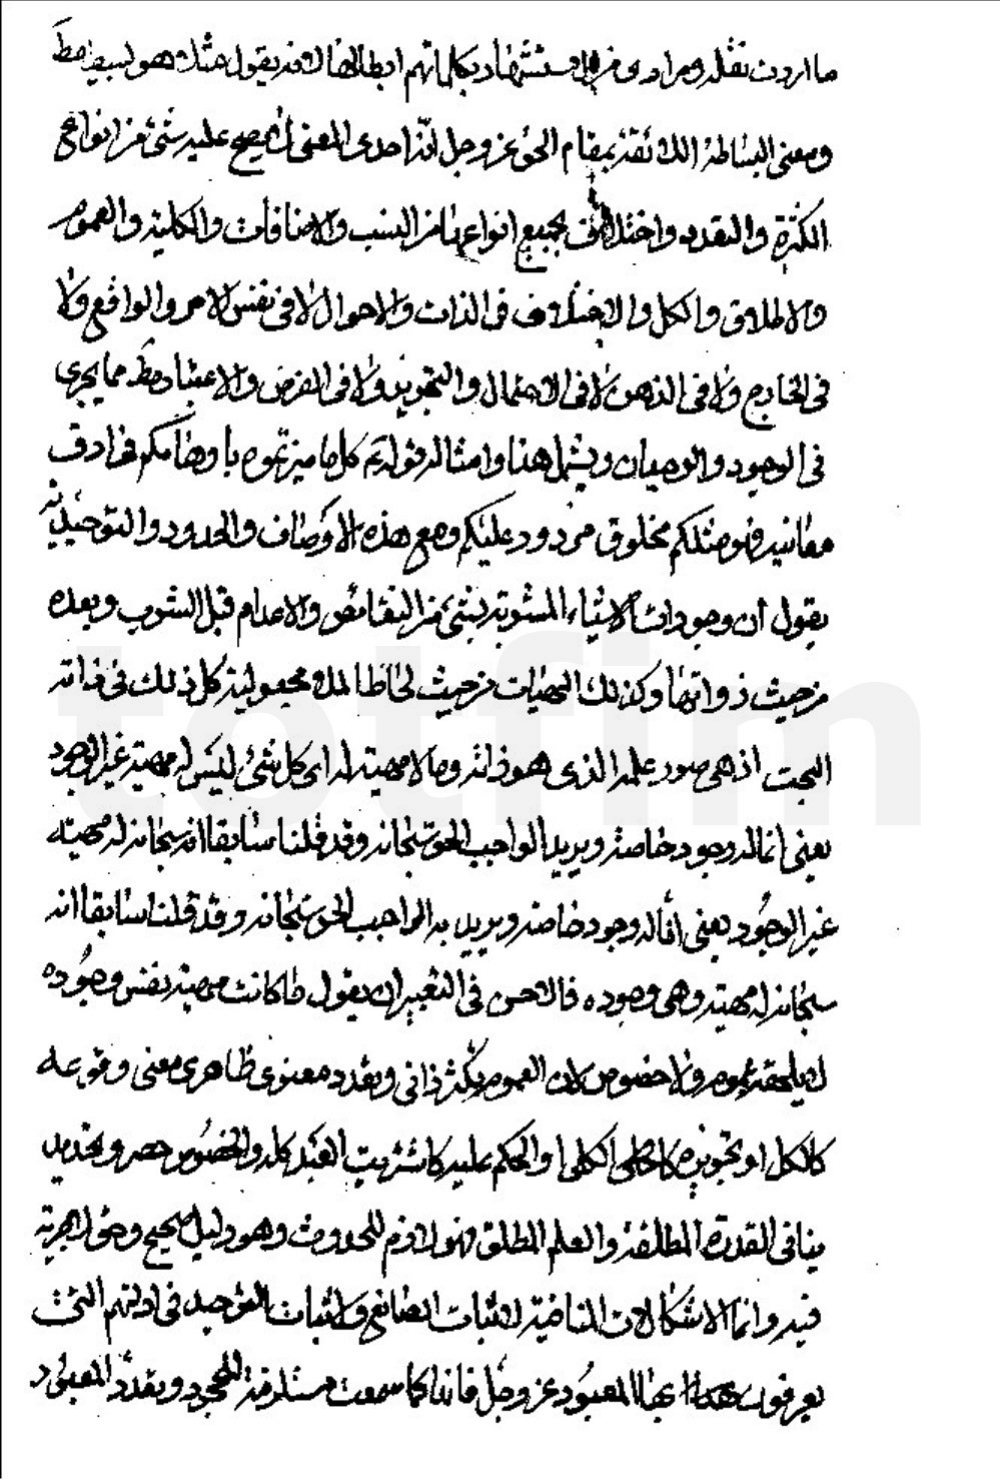 ما اردت نقله ومرادى من الاستشهاد بكلماتهم ابطالها لانه يقول مثلا هو بسيط فقط
ومعنى البساطة اللائقة بمقام الحق عز وجل انه احدى المعنى لا يصح عليه شئ من انواع
الكثرة والتعدد واختلاف بجميع انواعها من النسب والاضافات والكلية والعموم
والاطلاق والكل والاختلاف فى الذات والاحوال لا فى نفس الامر والواقع ولا
فى الخارج ولا فى الذهن لا فى الاحتمال والتجويز ولا فى الفرض والاعتبار فقط مما يجرى
فى الوجود والوجدان ويشمل هذا وامثاله قولهم كل ما ميزتموه باوهامكم فى ادق
معانيه فهو مثلكم مخلوق مردود عليكم ومع هذه الاوصاف والحدود والتوحيد
يقول ان وجودات الاشياء المشوبة بشئ من النقائص والاعدام قبل الشوب وبعده
من حيث ذواتها وكذلك المهيات من حيث لحاظ المجعولية كل ذلك فى ذاته
البحت اذ هى صور علمه الذى هو ذاته وما لا مهية له اى كل شئ ليس له مهية غير الوجود
يعنى انما له وجود خاصة ويريد الواجب الحق سبحانه وقد قلنا سابقا انه سبحانه له مهية
غير الوجود يعنى انما له وجود خاصة ويريد به الواجب الحق سبحانه وقد قلنا سابقا انه
سبحانه له مهية وهى وجوده فالاحسن فى التعبير ان يقول ما كانت مهية نفس وجوده
لا يلحقه عموم ولا خصوص لان العموم تكثر ذاتى وتعدد معنوى ظاهرى معنى وقوعه
كالكل او تجويزه كالكلى والحكم عليه كاشتريت العبد كله والخصوص حصر وتحديد
ينافى القدرة المطلقة والعلم المطلق فهو لازم للحدوث وهو دليل صحيح
فيه وانما الاشكالات الماضية لاثبات الصانع ولاثبات التوحيد فى ادلتهم التى
يعرفون بها المعبود عز وجل فانها كما سمعت مستلزمة وتعدد المعبود